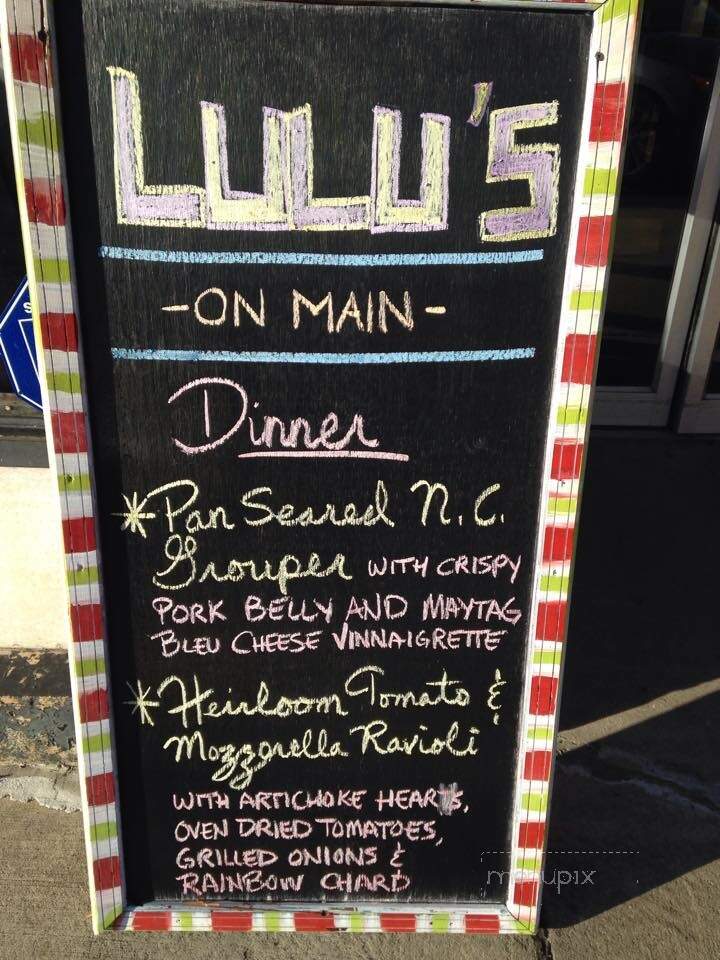 LULU'S
-ON MAIN-
Dinner
*Pan Seared N.C.
Grouper WITH CRISPY
PORK BELLY AND MAYTAG
BLEU CHEESE VINNAIGRETTE
*Heirloom Tomato &
Mozzerella Ravioli
WITH ARTICHOKE HEARTS,
OVEN DRIED TOMATOES,
GRILLED ONIONS &
RAINBOW CHARD
menupix